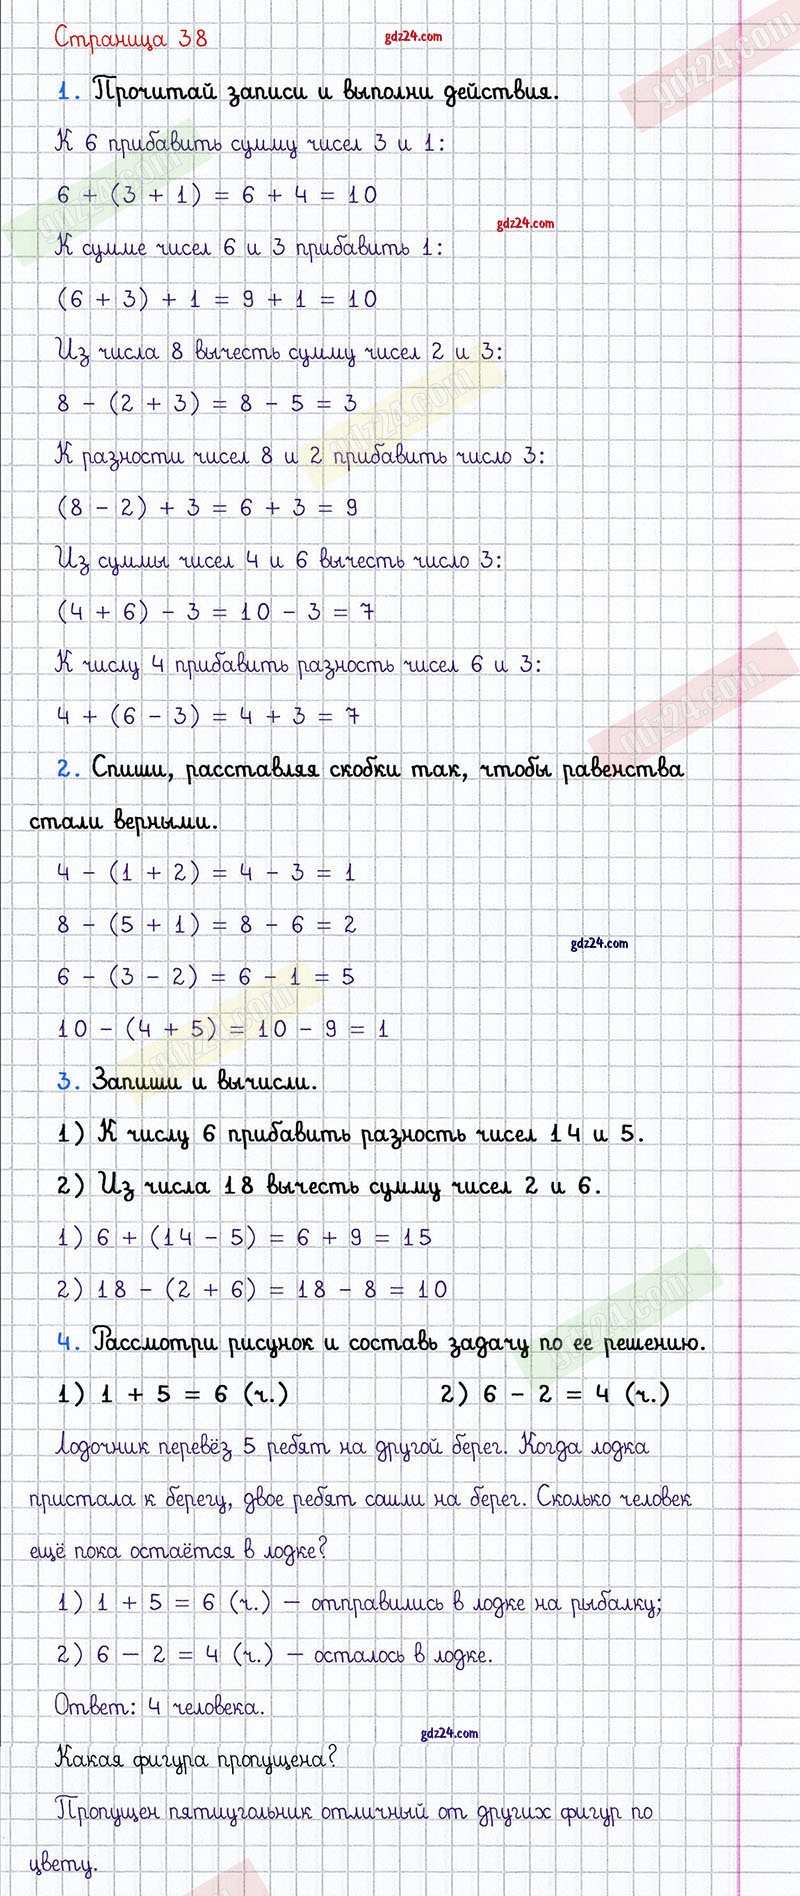 Страница 38
gdz24.com
gdz24.com
1. Прочитай записи и выполни действия.
К 6 прибавить сумму чисел 3 и 1:
6 + (3 + 1) = 6 + 4 = 10
gdz24.com
gdz24.com
К сумме чисел 6 и 3 прибавить 1:
(6 + 3) + 1 = 9 + 1 = 10
Из числа 8 вычесть сумму чисел 2 и 3:
8 - (2 + 3) = 8 - 5 = 3
gdz24.com
К разности чисел 8 и 2 прибавить число 3:
(8 - 2) + 3 = 6 + 3 = 9
Из суммы чисел 4 и 6 вычесть число 3:
(4 + 6) - 3 = 10 - 3 = 7
К числу 4 прибавить разность чисел 6 и 3:
4 + (6 - 3) = 4 + 3 = 7
gdz24.com
2. Спиши, расставляя скобки так, чтобы равенства
стали верными.
4 - (1 + 2) = 4 - 3 = 1
8 - (5 + 1) = 8 - 6 = 2
gdz24.com
6 - (3 - 2) = 6 - 1 = 5
10 - (4 + 5) = 10 - 9 = 1
gdz24.com
3. Запиши и вычисли.
1) К числу 6 прибавить разность чисел 14 и 5.
2) Из числа 18 вычесть сумму чисел 2 и 6.
1) 6 + (14 - 5) = 6 + 9 = 15
2) 18 - (2 + 6) = 18 - 8 = 10
gdz24.com
4. Рассмотри рисунок и составь задачу по ее решению.
1) 1 + 5 = 6 (ч.) 2) 6 - 2 = 4 (ч.)
Лодочник перевёз 5 ребят на другой берег. Когда лодка
пристала к берегу, двое ребят сошли на берег. Сколько человек
ещё пока остаётся в лодке?
1) 1 + 5 = 6 (ч.) — отправились в лодке на рыбалку;
2) 6 — 2 = 4 (ч.) — осталось в лодке.
Ответ: 4 человека.
gdz24.com
Какая фигура пропущена?
Пропущен пятиугольник отличный от других фигур по
цвету.